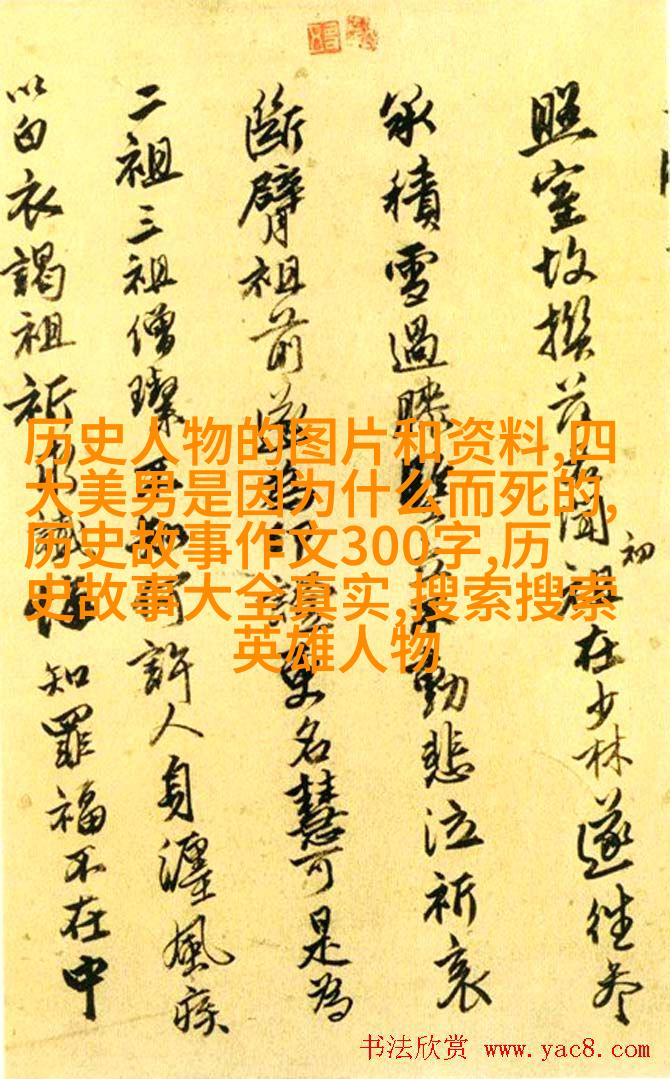 照室故撰聞初祖在少林遂往參
承積雪過膝動悲泣祈哀
斷臂祖前證更名慧可是為
二祖三祖僧璨不許人身纏風疾
以白衣謁祖祈知罪福不在中
历史人物的图片和资料,四
大美男是因为什么而死的,
历史故事作文300字,历
史故事大全真实,搜索搜索
英雄人物
书法欣赏 www.yac8.com